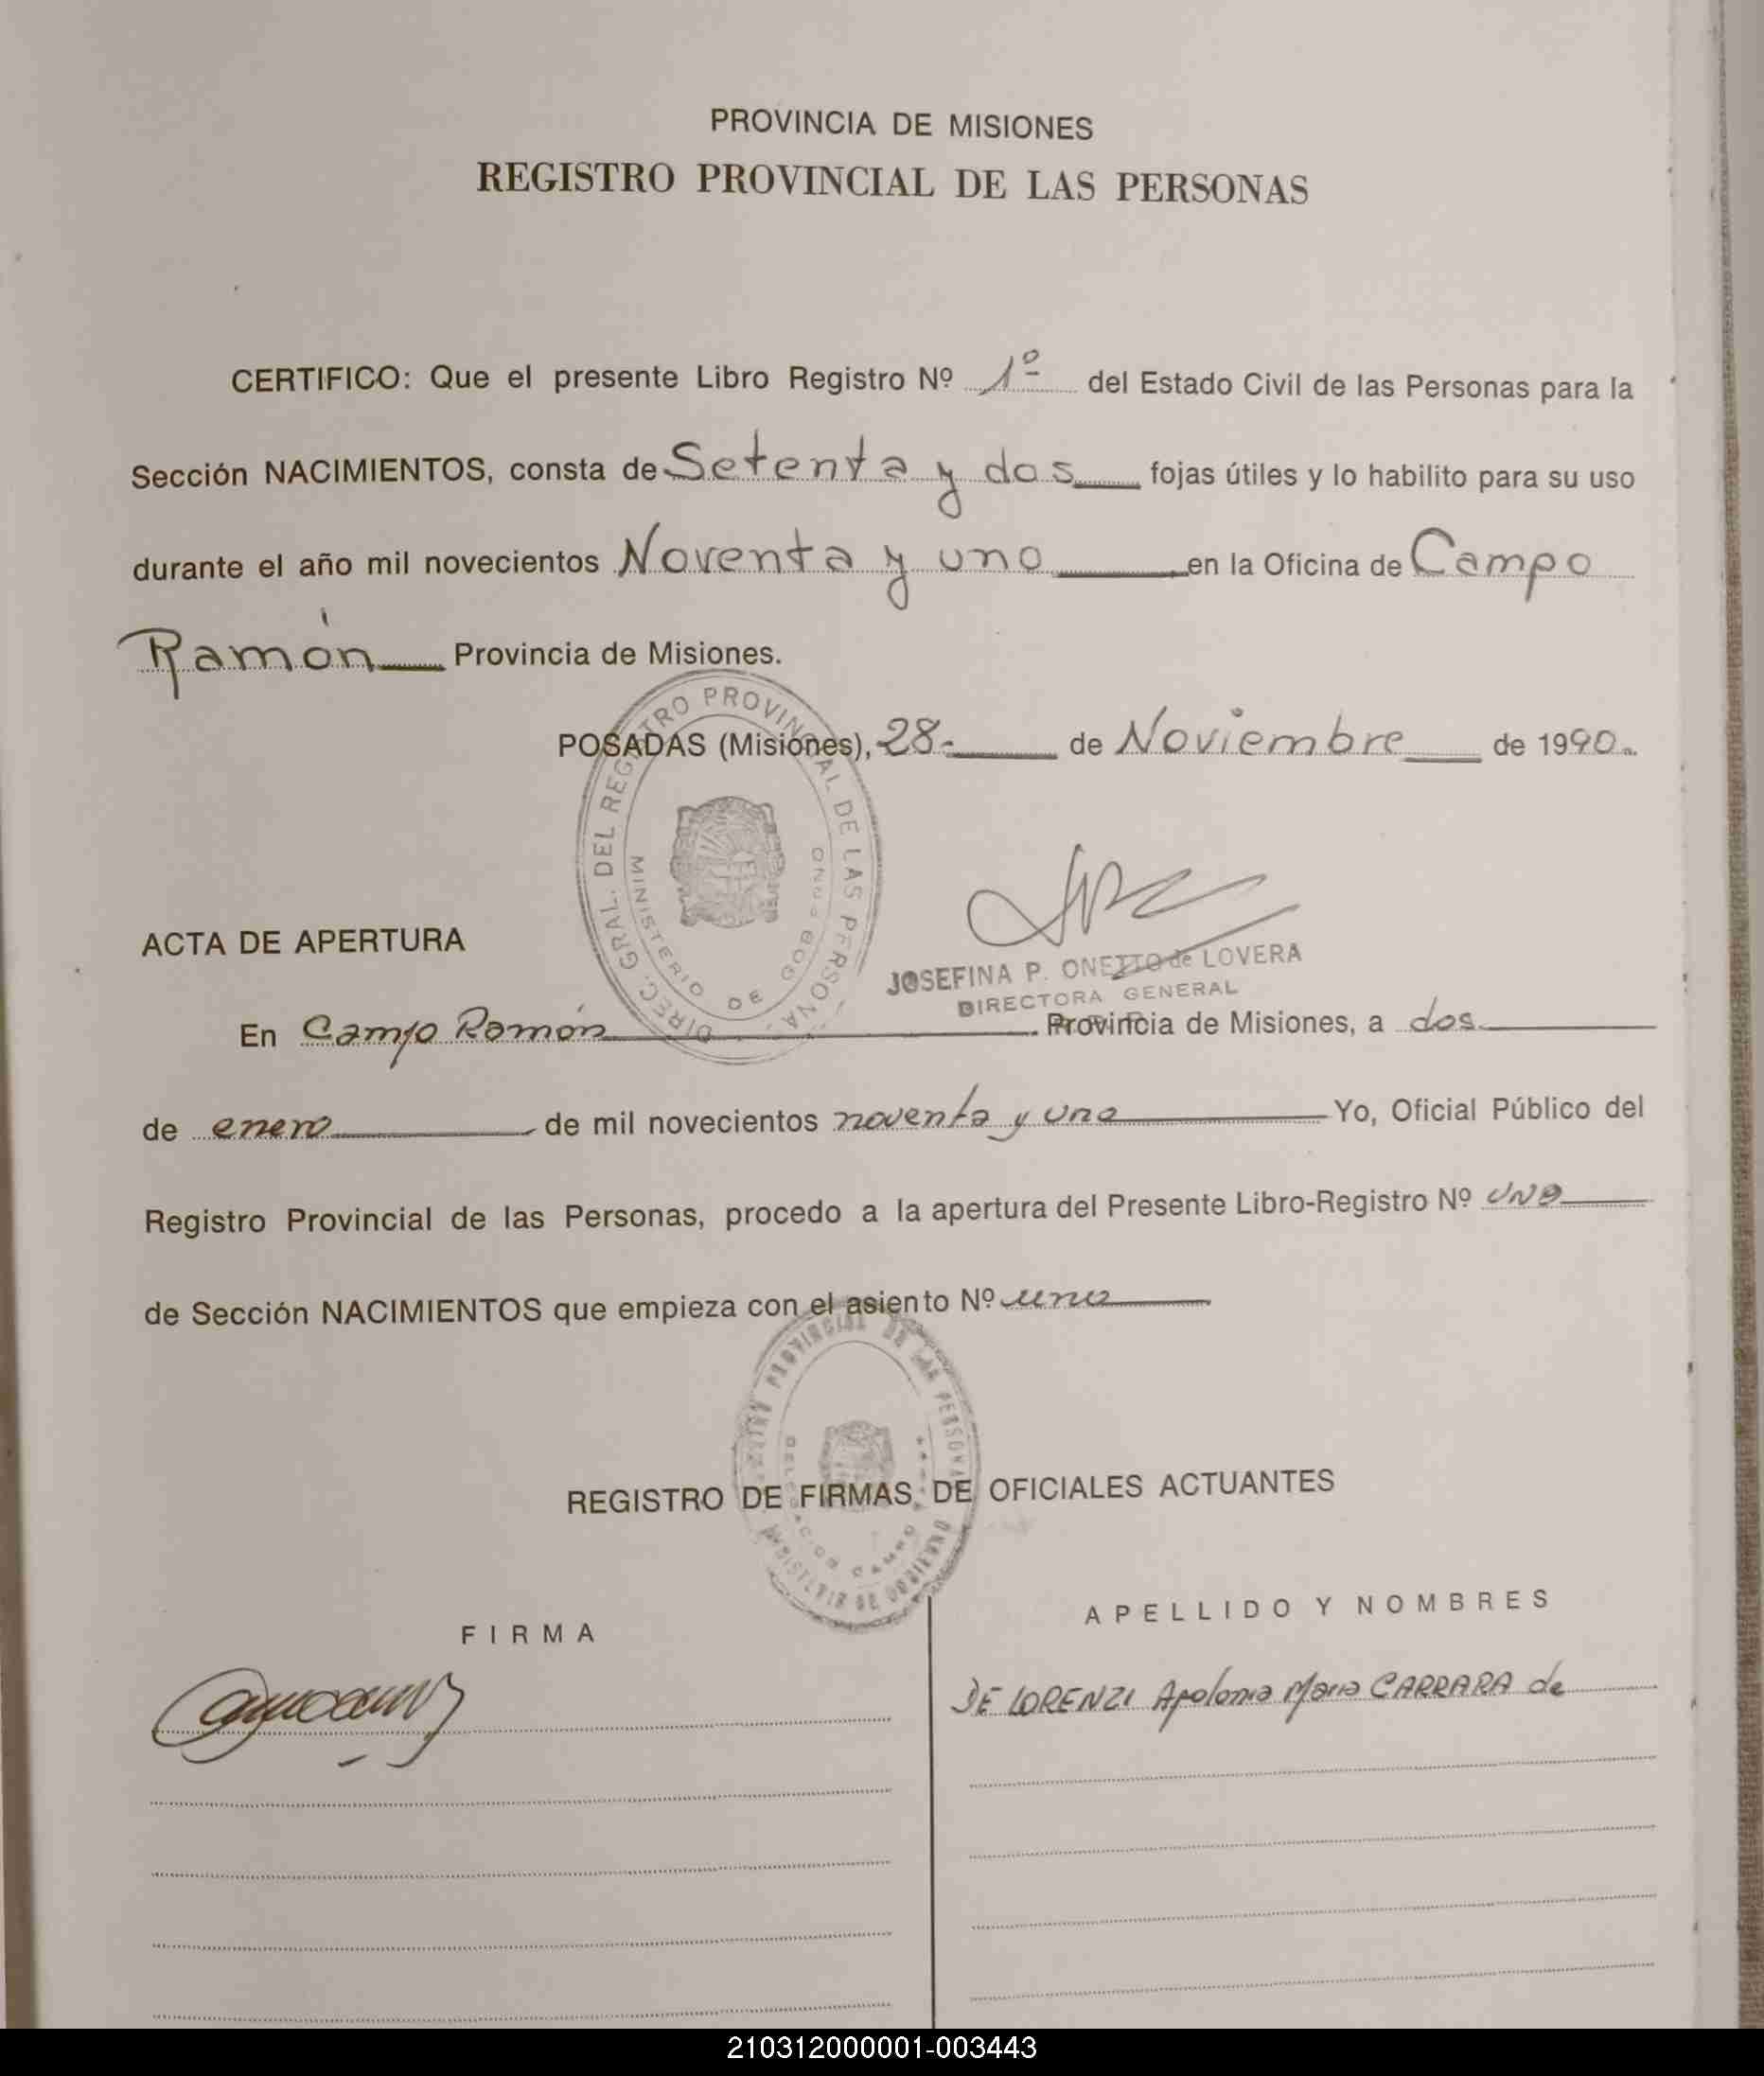 PROVINCIA DE MISIONES
REGISTRO PROVINCIAL DE LAS PERSONAS
CERTIFICO: Que el presente Libro Registro Nº 1º del Estado Civil de las Personas para la
Sección NACIMIENTOS, consta de Setenta y dos fojas útiles y lo habilito para su uso
durante el año mil novecientos Noventa y uno en la Oficina de Campo
Ramón Provincia de Misiones.
POSADAS (Misiones), 28- de Noviembre de 1990.
DIREC. GRAL. DEL REGISTRO PROVINCIAL DE LAS PERSONAS
MINISTERIO DE GOBIERNO
JOSEFINA P. ONETTO de LOVERA
DIRECTORA GENERAL
ACTA DE APERTURA
En Campo Ramón Provincia de Misiones, a dos
de enero de mil novecientos noventa y uno Yo, Oficial Público del
Registro Provincial de las Personas, procedo a la apertura del Presente Libro-Registro Nº UNO
de Sección NACIMIENTOS que empieza con el asiento Nº uno
REGISTRO PROVINCIAL DE LAS PERSONAS
MINISTERIO DE GOBIERNO
DELEGACION CAMPO
REGISTRO DE FIRMAS DE OFICIALES ACTUANTES
FIRMA
APELLIDO Y NOMBRES
DE LORENZI Apolonia Maria CARRARA de
210312000001-003443